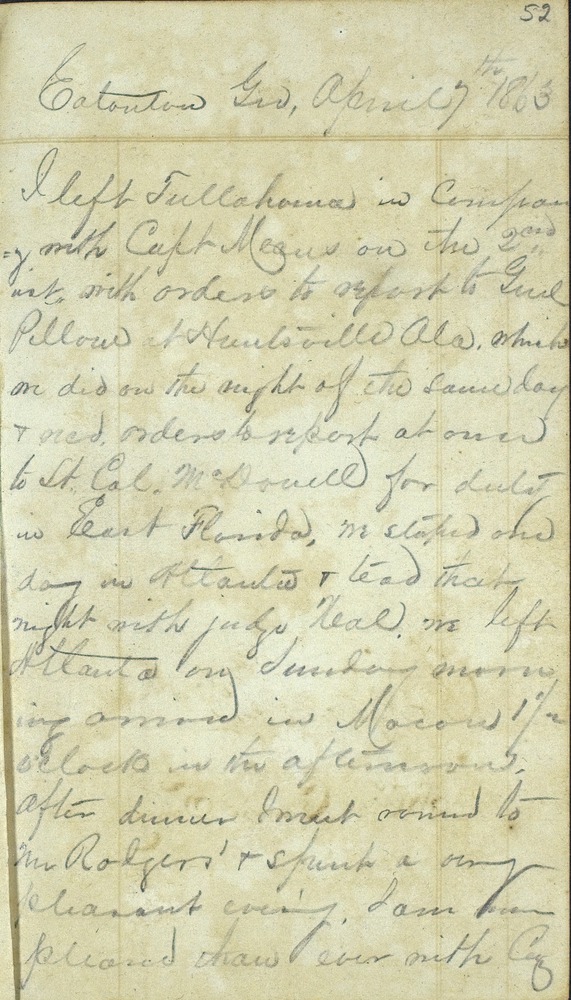 52
Eatonton Geo, April 7th 1863
I left Tullahoma in Compan
=y with Capt Means on the 2nd
inst, with orders to report to Genl
Pillow at Huntsville Ala. which
we did on the night of the same day
& recd. orders to report at once
to Lt. Col. McDowell for duty
in East Florida, we stoped one
day in Atlanta & tead that
night with judge Neal. we left
Atlanta on Sunday morn
ing arrived in Macon 1/2
o'clock in the afternoon.
After dinner I went round to
Mr Rodgers' & spent a very
pleasant evening. I am
pleased than ever with